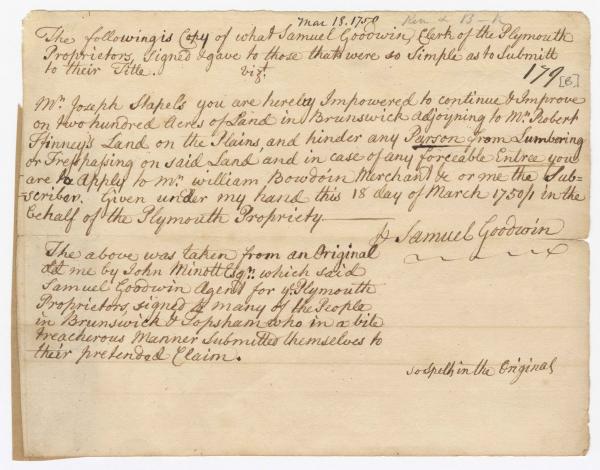 Mar 18. 1750 Ken & B-k
The following is Copy of what Samuel Goodwin, Clerk of the Plymouth
Proprietors, signed & gave to those that were so Simple as to Submitt
to their Title. vizt.
179 [B]
Mr. Joseph Stapels you are hereby Impowered to continue & Improve
on two hundred Acres of Land in Brunswick adjoyning to Mr. Robert
Ffinney's Land on the Plains, and hinder any Parson from Lumbering
or Tresspassing on said Land and in case of any forceable Entree you
are to Apply to Mr. william Bowdoin Merchant & or me the Sub=
scriber. Given under my hand this 18 day of March 1750/1 in the
behalf of the Plymouth Propriety
Samuel Goodwin
The above was taken from an Original
let me by John Minott Esqr. which said
Samuel Goodwin Agent for ye Plymouth
Proprietors, signed to many of the People
in Brunswick & Topsham who in a bile
treacherous Manner Submitted themselves to
their pretended Claim.
so spelt in the Original